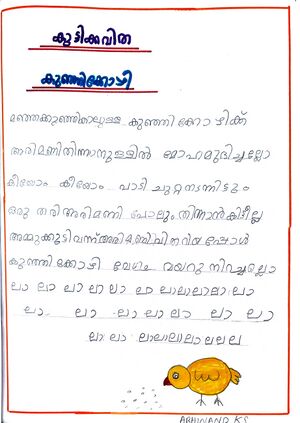 കുട്ടിക്കവിത
കുഞ്ഞിക്കോഴി
മഞ്ഞക്കുഞ്ഞിക്കാലുള്ള കുഞ്ഞി ക്കോഴിക്ക്
അരിമണിതിന്നാനുള്ളിൽ മോഹമുദിച്ചല്ലോ
കീയോം കീയോം പാടി ചുറ്റിനടന്നിട്ടും
ഒരു തരി അരിമണി പോലും തിന്നാൻകിട്ടീല്ല
അമ്മുക്കുട്ടിവന്ന് അരിമണി വിതറിയപ്പോൾ
കുഞ്ഞിക്കോഴി വേഗം വയറു നിറച്ചല്ലോ
ലാ ലാ ലാ ലാ ലാ ലാ ലാലാലാലാ ലാ
ലാ ലാ ലാ ലാ ലാ ലാ ലാ
ലാ ലാ ലാലാലാലാ ലല ല
ABHINAND K S